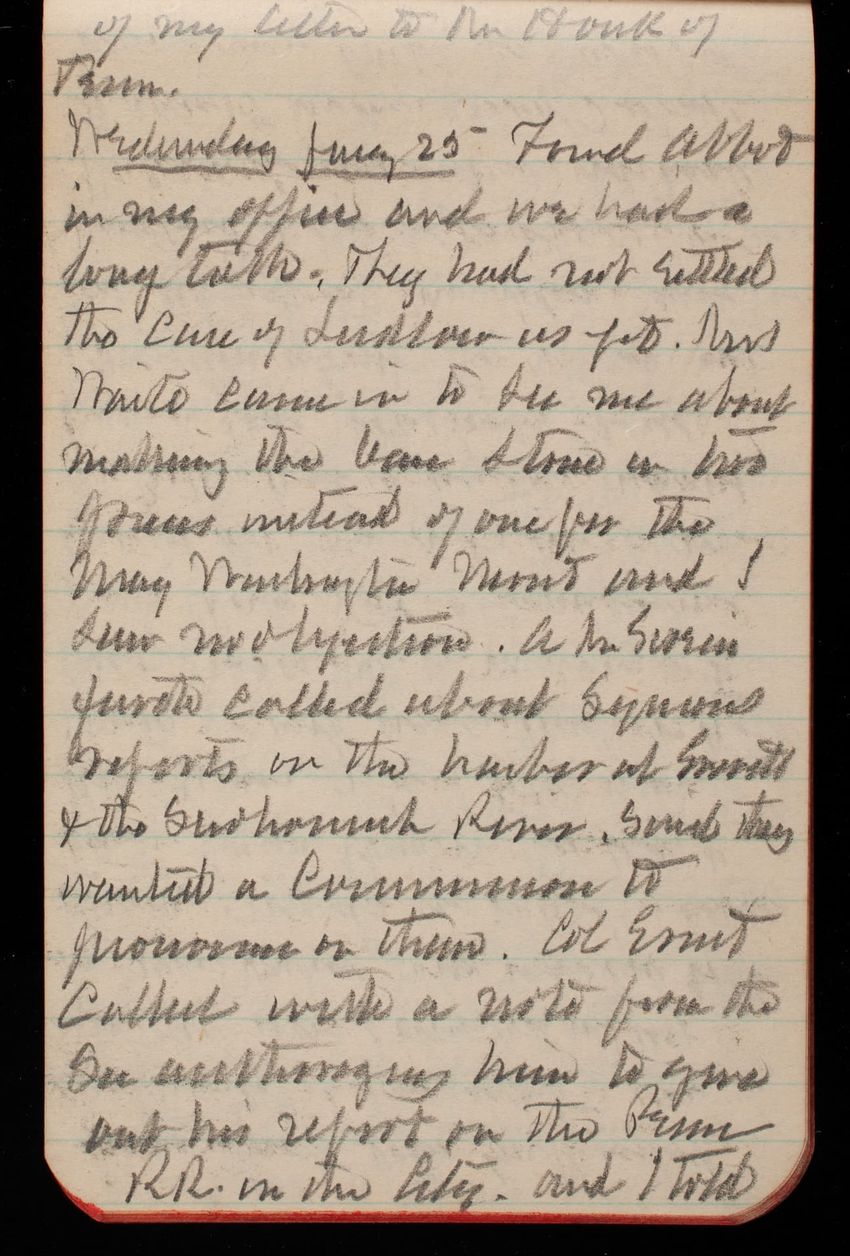 of my letter to Mr Houk of
Tenn.
Wednesday Jany 25 Found Abbot
in my office and we had a
long talk. They had not settled
the case of Ludlow as yet. Mrs
Waite came in to see me about
making the base stone in two
pieces instead of one for the
Mary Washington Mont and I
saw no objection. A Mr
called about Symons
reports on the harbor at Everett
& the Snohomish River. Said they
wanted a Commission to
pronounce on them. Col Ernst
Called with a note from the
Sec authorizing him to give
out his report on the Penn
RR. in the City. and I told